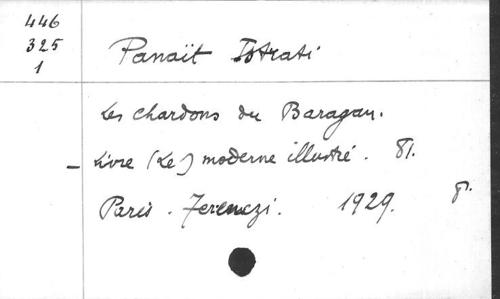 446
325
1
Panaït Istrati
Les chardons du Baragan.
– Livre (Le) moderne illustré. 81.
Paris. Ferenczi. 1929. 8°.